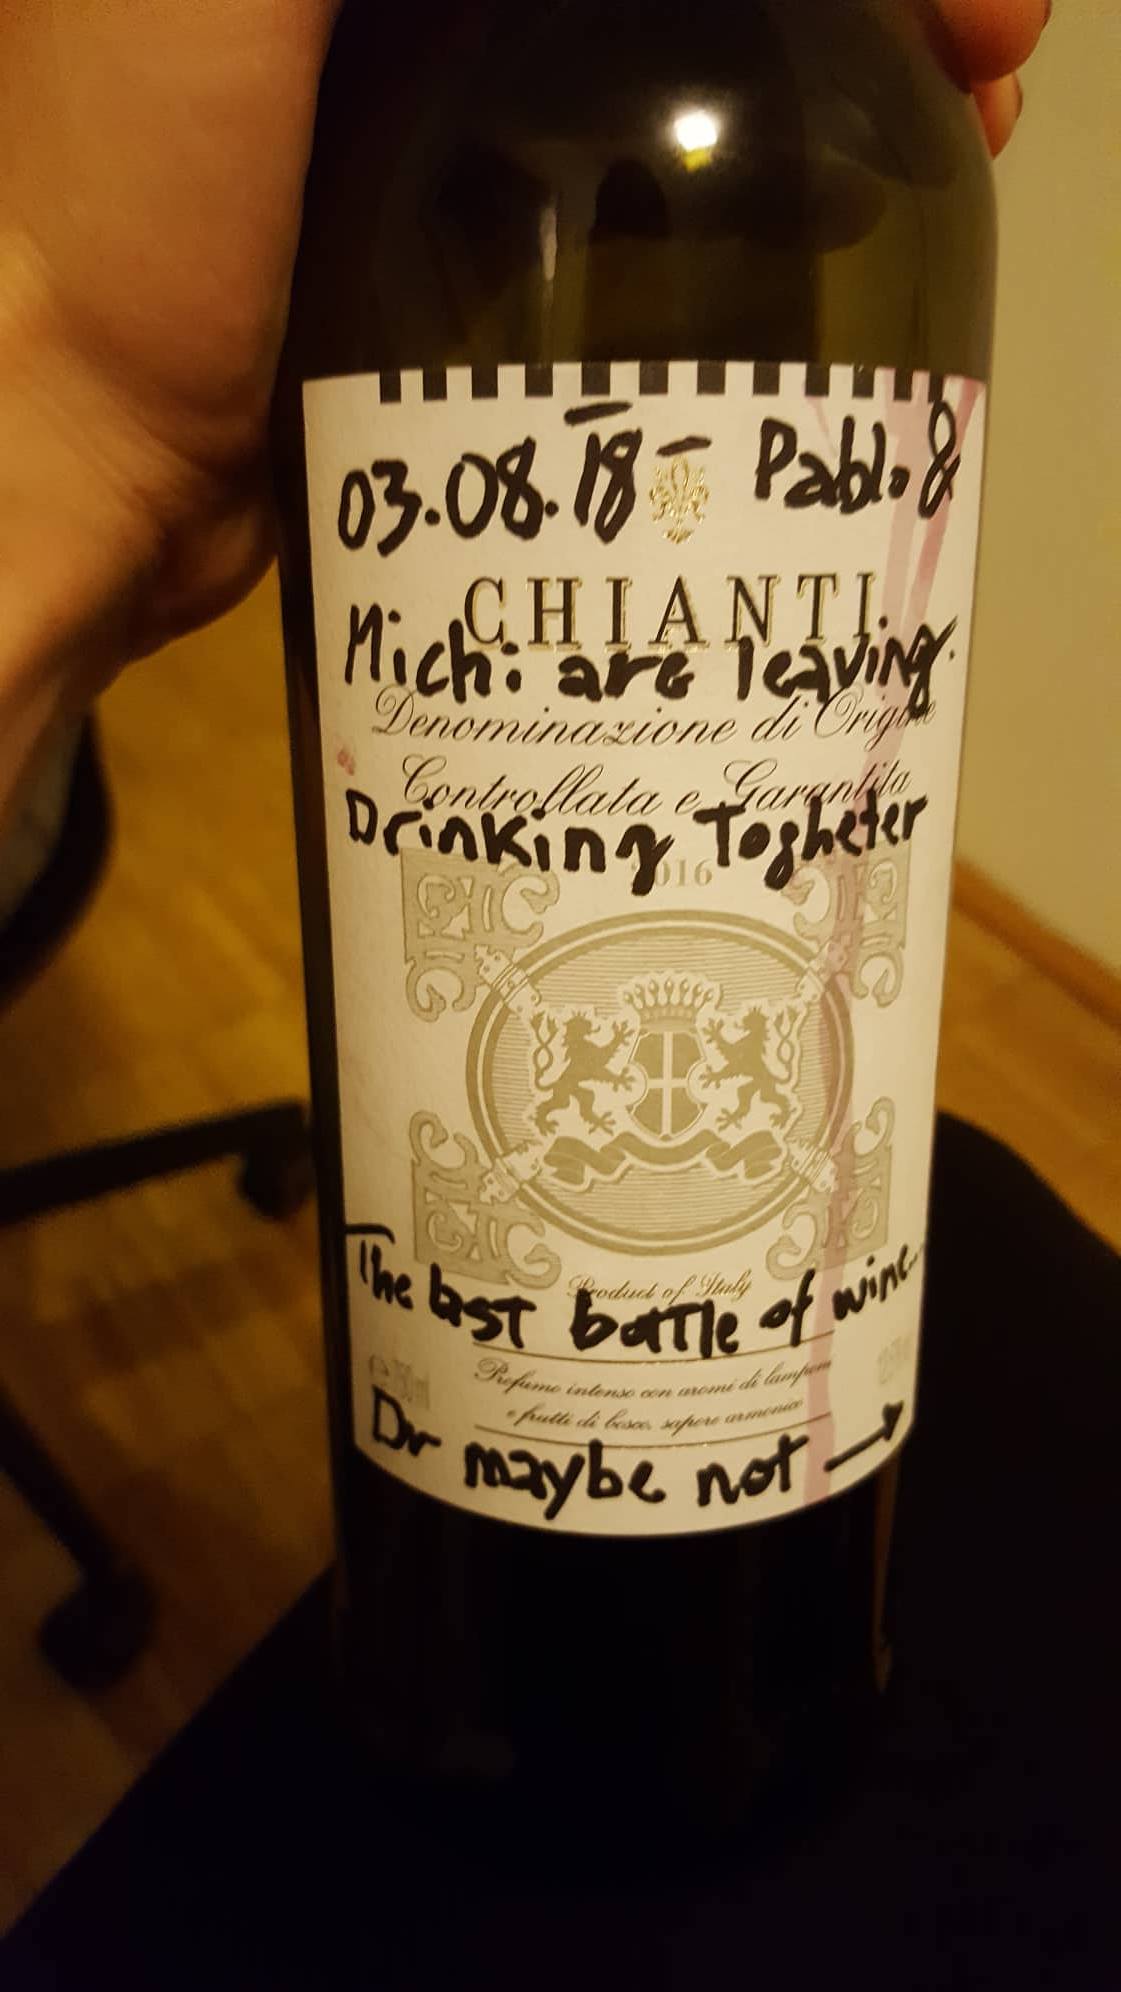 03.08.18 - Pablo &
CHIANTI
Michi are leaving.
Denominazione di Origine
Controllata e Garantita
Drinking Togheter
2016
Product of Italy
The last bottle of wine...
Profumo intenso con aromi di lamponi
e frutti di bosco, sapore armonico
750ml
Or maybe not →